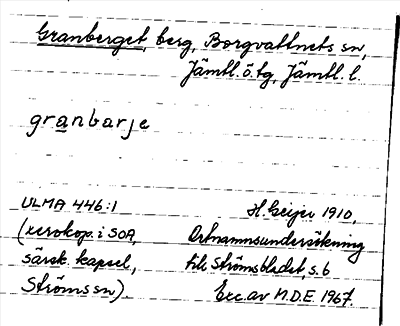 Granberget, berg, Borgvattnets sn,
Jämtl. ö. tg, Jämtl. l.
granbarje
ULMA 446:1 H. Geijer 1910,
(xerokop. i SOA, Ortnamnsundersökning
särsk. kapsel, till Strömsbladet, s. 6
Ströms sn). Exc. av M.D.E. 1967.